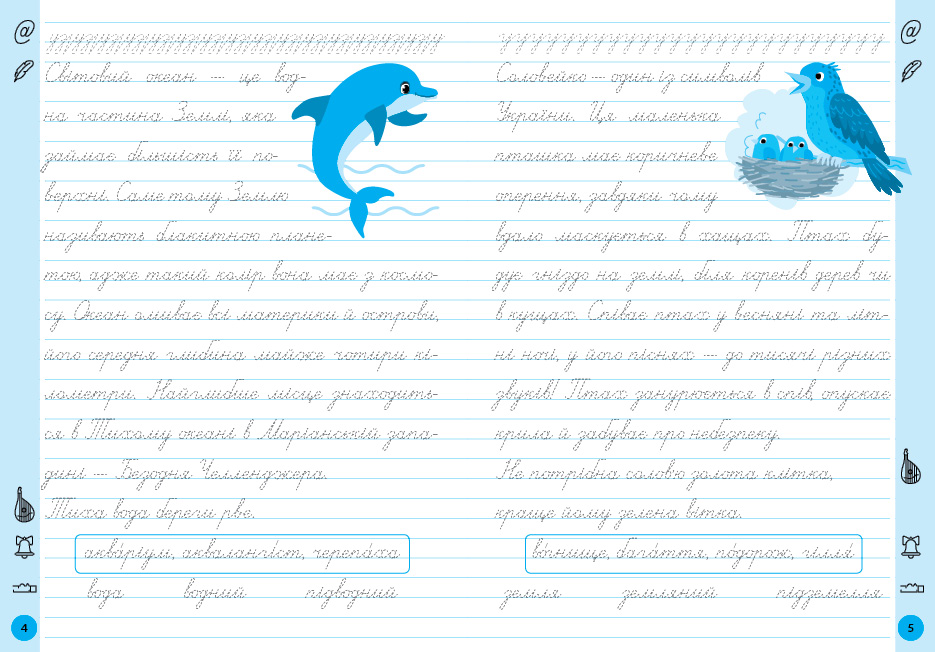 Світовий океан — це вод-
на частина Землі, яка
займає більшість її по-
верхні. Саме тому Землю
називають блакитною плане-
тою, адже такий колір вона має з космо-
су. Океан омиває всі материки й острови,
його середня глибина майже чотири кі-
лометри. Найглибше місце знаходить-
ся в Тихому океані в Маріанській запа-
дині — Безодня Челленджера.
Тиха вода береги рве.
аква́ріум, акваланги́ст, черепа́ха
вода водний підводний
4
Соловейко — один із символів
України. Ця маленька
пташка має коричневе
оперення, завдяки чому
вдало маскується в хащах. Птах бу-
дує гніздо на землі, біля коренів дерев чи
в кущах. Співає птах у весняні та літ-
ні ночі, у його піснях — до тисячі різних
звуків! Птах занурюється в спів, опускає
крила й забуває про небезпеку.
Не потрібна солов'ю золота клітка,
краще йому зелена вітка.
во́гнище, бага́ття, по́дорож, гілля́
земля земляний підземелля
5
@
@